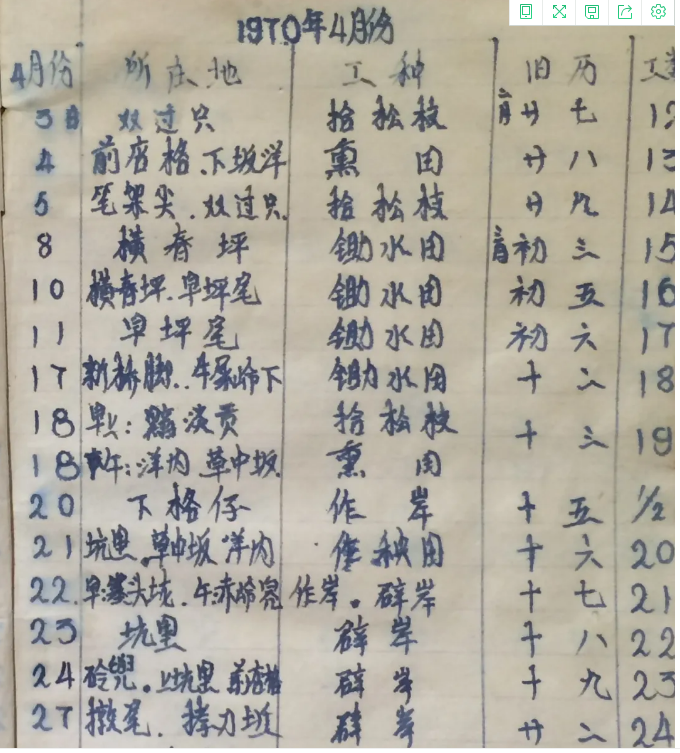 1970年4月份
4月份 所在地 工种 旧历 工
3日 双过只 拾松枝 二月廿七 12
4 前店格.下坂洋 熏田 廿八 13
5 笔架尖.双过只. 拾松枝 廿九 14
8 横春坪 锄水田 初三 15
10 横春坪.旱坪尾 锄水田 初五 16
11 旱坪尾 锄水田 初六 17
17 新桥脚..牛尿岭下 锄水田 十二 18
18 早: 淡贡 拾松枝 十三 19
18 午:洋内 草中坂 熏田
20 下格仔 作岸 十五 1/2
21 坑里.草中坂 洋内 秧田 十六 20
22. 早:头垅.午:赤岭 作岸。碎岸 十七 21
23 坑里 碎岸 十八 22
24 上坑里 前店格 碎岸 十九 23
27 尾. 坂 碎岸 廿二 24